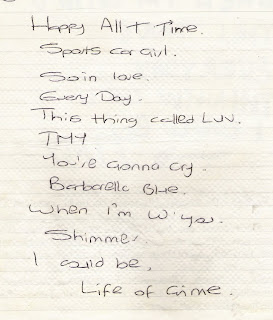 Happy All T Time.
Sports car Girl.
So in love.
Every Day.
This thing called LUV.
TMY.
You're Gonna Cry.
Barbarella Blue.
When I'm W' you.
Shimmer
I could be.
Life of Crime.